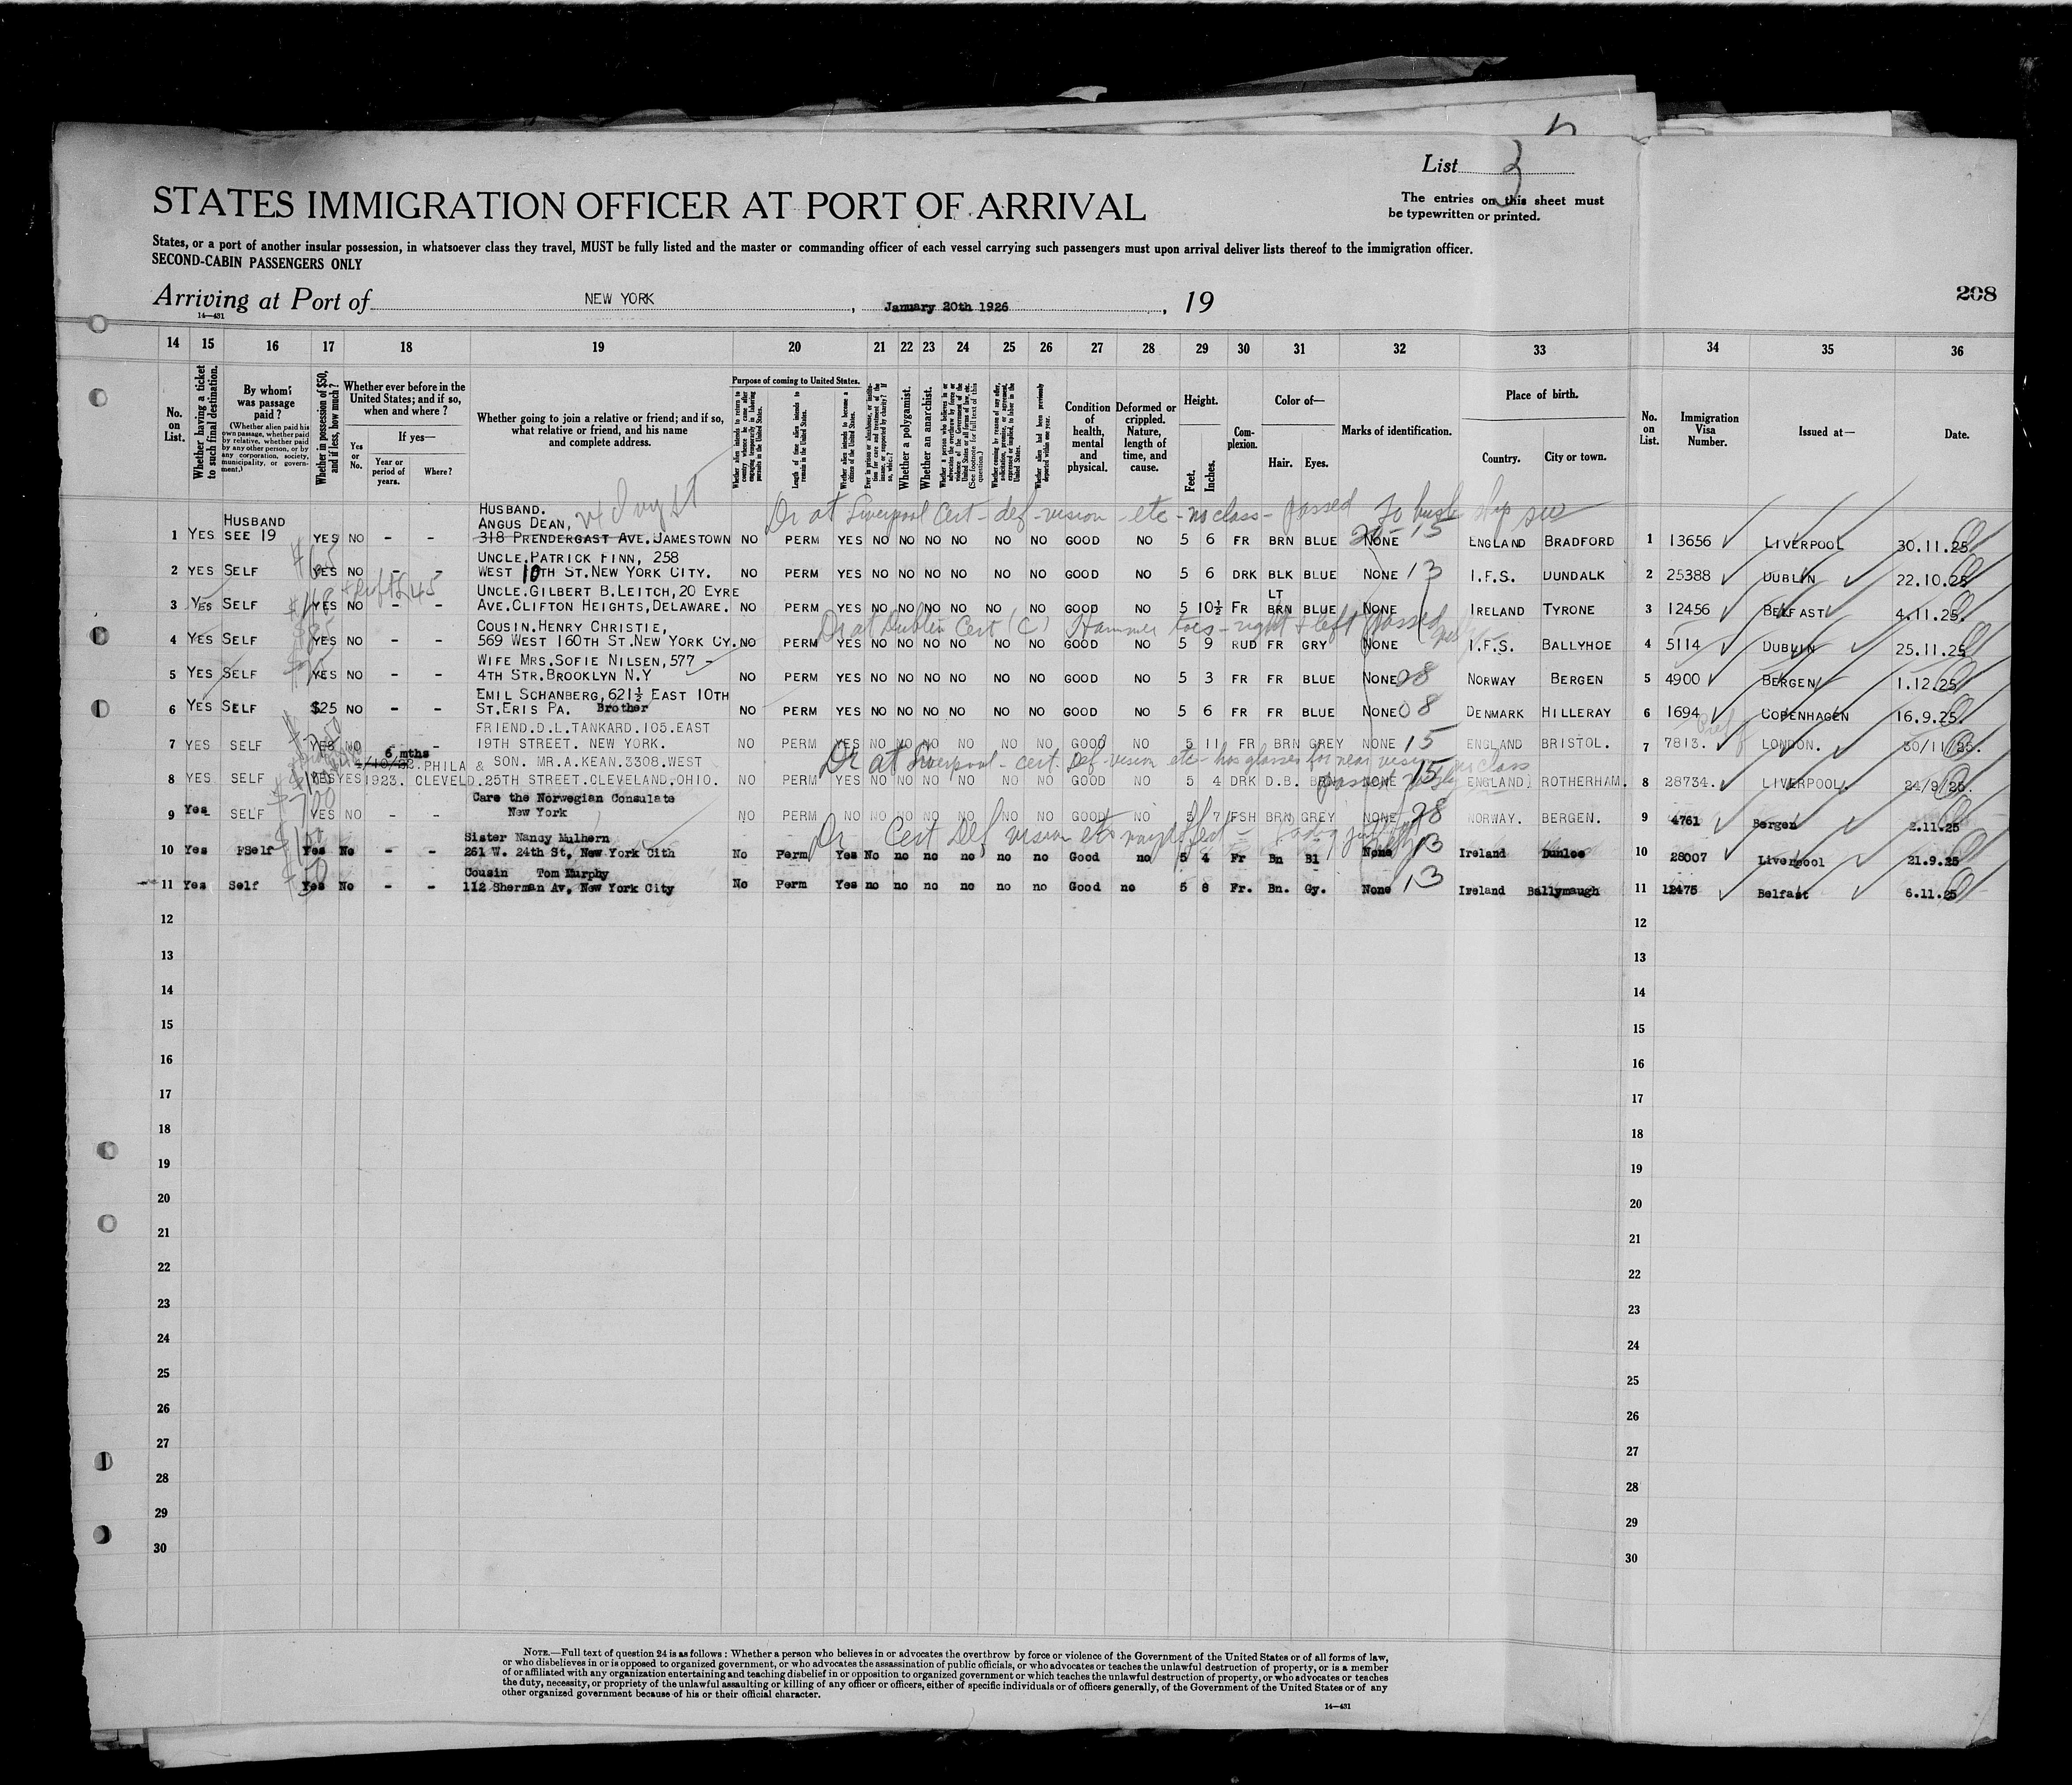 List 3
The entries on this sheet must
be typewritten or printed.
STATES IMMIGRATION OFFICER AT PORT OF ARRIVAL
States, or a port of another insular possession, in whatsoever class they travel, MUST be fully listed and the master or commanding officer of each vessel carrying such passengers must upon arrival deliver lists thereof to the immigration officer.
SECOND-CABIN PASSENGERS ONLY
Arriving at Port of NEW YORK, January 20th 1926, 19
14—431
208
14 15 16 17 18 19 20 21 22 23 24 25 26 27 28 29 30 31 32 33 34 35 36
No. on List.
Whether having a ticket to such final destination.
By whom was passage paid?
(Whether alien paid his own passage, whether paid by relative, whether paid by any other person, or by any corporation, society, municipality, or government.)
Whether in possession of $50, and if less, how much?
Whether ever before in the United States; and if so, when and where?
Yes or No.
If yes—
Year or period of years.
Where?
Whether going to join a relative or friend; and if so, what relative or friend, and his name and complete address.
Purpose of coming to United States.
Length of time alien intends to remain in the United States.
Whether alien intends to become a citizen of the United States.
Whether a polygamist.
Whether an anarchist.
Condition of health, mental and physical.
Deformed or crippled. Nature, length of time, and cause.
Height.
Feet.
Inches.
Complexion.
Color of—
Hair.
Eyes.
Marks of identification.
Place of birth.
Country.
City or town.
No. on List.
Immigration Visa Number.
Issued at—
Date.
Dr at Liverpool Cert - def - vision - etc - no class - passed
HUSBAND.
HUSBAND ANGUS DEAN,
1 YES SEE 19 YES NO - - 318 PRENDERGAST AVE. JAMESTOWN NO PERM YES NO NO NO NO NO NO GOOD NO 5 6 FR BRN BLUE NONE 15 ENGLAND BRADFORD 1 13656 LIVERPOOL 30.11.25
UNCLE. PATRICK FINN, 258
2 YES SELF YES NO - - WEST 10TH ST. NEW YORK CITY. NO PERM YES NO NO NO NO NO NO GOOD NO 5 6 DRK BLK BLUE NONE 13 I.F.S. DUNDALK 2 25388 DUBLIN 22.10.25
UNCLE. GILBERT B. LEITCH, 20 EYRE LT
3 YES SELF YES NO - - AVE. CLIFTON HEIGHTS, DELAWARE. NO PERM YES NO NO NO NO NO NO GOOD NO 5 10½ FR BRN BLUE NONE IRELAND TYRONE 3 12456 BELFAST 4.11.25
Dr at Dublin Cert (C) Hammer toes - right + left passed
COUSIN. HENRY CHRISTIE,
4 YES SELF YES NO - - 569 WEST 160TH ST. NEW YORK CY. NO PERM YES NO NO NO NO NO NO GOOD NO 5 9 RUD FR GRY NONE I.F.S. BALLYHOE 4 5114 DUBLIN 25.11.25
WIFE MRS. SOFIE NILSEN, 577 -
5 YES SELF YES NO - - 4TH STR. BROOKLYN N.Y NO PERM YES NO NO NO NO NO NO GOOD NO 5 3 FR FR BLUE NONE 28 NORWAY BERGEN 5 4900 BERGEN 1.12.25
EMIL SCHANBERG, 621½ EAST 10TH
6 YES SELF $25 NO - - ST. ERIS PA. Brother NO PERM YES NO NO NO NO NO NO GOOD NO 5 6 FR FR BLUE NONE 08 DENMARK HILLERAY 6 1694 COPENHAGEN 16.9.25.
FRIEND. D.L. TANKARD. 105. EAST
7 YES SELF YES NO - 19TH STREET. NEW YORK. NO PERM YES NO NO NO NO NO NO GOOD NO 5 11 FR BRN GREY NONE 15 ENGLAND BRISTOL. 7 7813. LONDON. 30/11/25.
Dr at Liverpool - cert. Def - vision etc - has glasses for near vision
6 mths
4/10/22. PHILA & SON. MR. A. KEAN. 3308. WEST
8 YES SELF YES YES 1923. CLEVELD. 25TH STREET. CLEVELAND. OHIO. NO PERM YES NO NO NO NO NO NO GOOD NO 5 4 DRK D.B. NONE 15 ENGLAND ROTHERHAM. 8 28734. LIVERPOOL. 24/9/25.
Care the Norwegian Consulate
9 Yes SELF YES NO - - New York NO PERM NO NO NO NO NO NO NO GOOD NO 5 7 FSH BRN GREY NONE 28 NORWAY. BERGEN. 9 4761 Bergen 2.11.25
Dr Cert Def vision etc
Sister Nancy Mulhern
10 Yes PSelf Yes No - - 261 W. 24th St, New York Cith No Perm Yes No no no no no no Good no 5 4 Fr Bn Bl None 13 Ireland Dunloe 10 28007 Liverpool 21.9.25
Cousin Tom Murphy
11 Yes Self Yes No - - 112 Sherman Av, New York City No Perm Yes no no no no no no Good no 5 8 Fr. Bn. Gy. None 13 Ireland Ballymaugh 11 12475 Belfast 6.11.25
12 12
13 13
14 14
15 15
16 16
17 17
18 18
19 19
20 20
21 21
22 22
23 23
24 24
25 25
26 26
27 27
28 28
29 29
30 30
NOTE.—Full text of question 24 is as follows: Whether a person who believes in or advocates the overthrow by force or violence of the Government of the United States or of all forms of law,
or who disbelieves in or is opposed to organized government, or who advocates the assassination of public officials, or who advocates or teaches the unlawful destruction of property, or is a member
of or affiliated with any organization entertaining and teaching disbelief in or opposition to organized government or which teaches the unlawful destruction of property, or who advocates or teaches
the duty, necessity, or propriety of the unlawful assaulting or killing of any officer or officers, either of specific individuals or of officers generally, of the Government of the United States or of any
other organized government because of his or their official character.
14—431